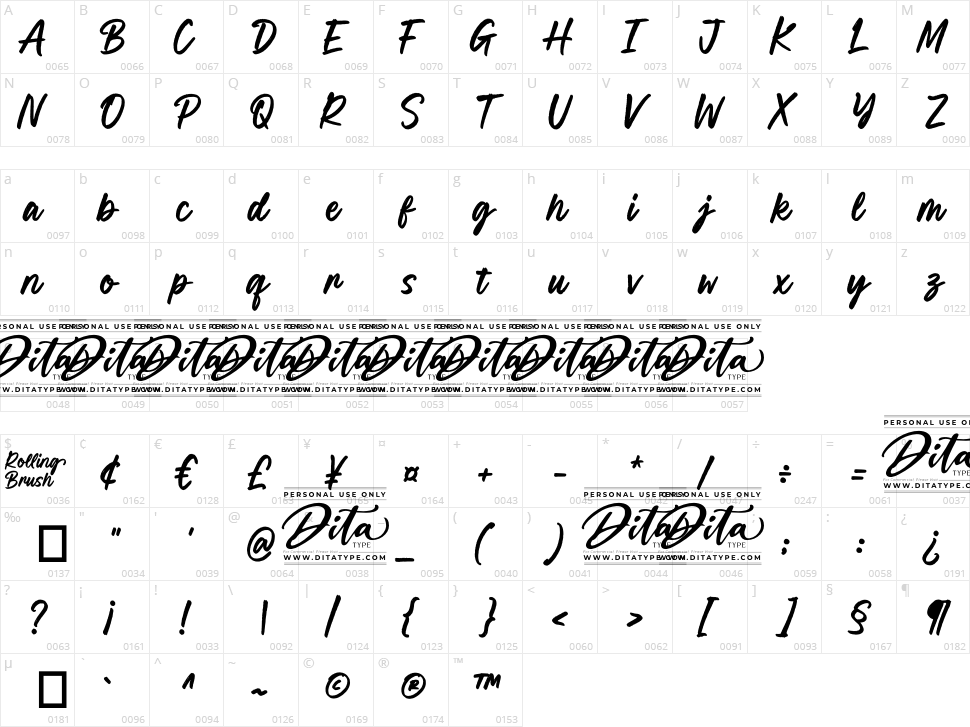 A B C D E F G H I J K L M
A B C D E F G H I J K L M
0065 0066 0067 0068 0069 0070 0071 0072 0073 0074 0075 0076 0077
N O P Q R S T U V W X Y Z
N O P Q R S T U V W X Y Z
0078 0079 0080 0081 0082 0083 0084 0085 0086 0087 0088 0089 0090
a b c d e f g h i j k l m
a b c d e f g h i j k l m
0097 0098 0099 0100 0101 0102 0103 0104 0105 0106 0107 0108 0109
n o p q r s t u v w x y z
n o p q r s t u v w x y z
0110 0111 0112 0113 0114 0115 0116 0117 0118 0119 0120 0121 0122
PERSONAL USE ONLY
Dita Dita Dita Dita Dita Dita Dita Dita Dita Dita
TYPE
WWW.DITATYPE.COM
0048 0049 0050 0051 0052 0053 0054 0055 0056 0057
$ ¢ € £ ¥ ¤ + - * / ÷ =
PERSONAL USE ON
Rolling Brush ¢ € £ ¥ ¤ + - * / ÷ = Dita
TYP
WWW.DITATYPE.CO
0036 0162 0128 0163 0165 0164 0043 0045 0042 0047 0247 0061 0037
PERSONAL USE ONLY PERSONAL USE ONLY
‰ " ' @ ( ) ; : ¿
" ' @ Dita _ ( ) Dita Dita ; : ¿
TYPE TYPE
WWW.DITATYPE.COM WWW.DITATYPE.COM
0137 0034 0039 0064 0038 0095 0040 0041 0044 0046 0059 0058 0191
? ¡ ! \ | { } < > [ ] § ¶
? ¡ ! \ | { } < > [ ] § ¶
0063 0161 0033 0092 0124 0123 0125 0060 0062 0091 0093 0167 0182
µ ` ^ ~ © ® ™
` ^ ~ © ® ™
0181 0096 0094 0126 0169 0174 0153